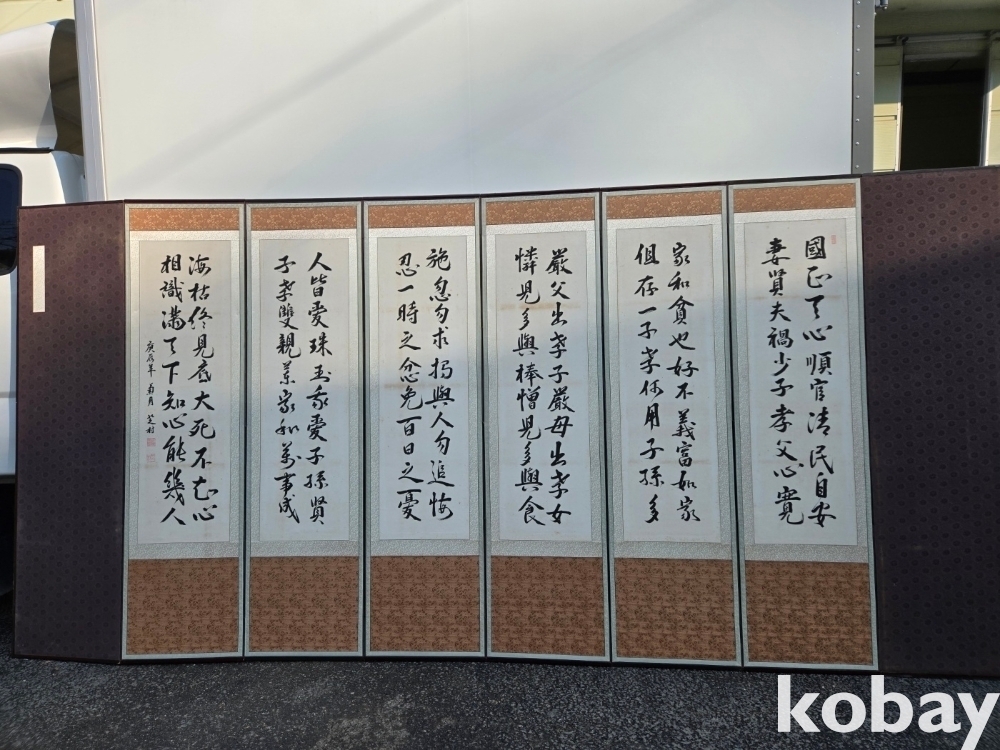 國正天心順官清民自安
妻賢夫禍少子孝父心寬
家和貧也好不義富如家
但存一子孝何用子孫多
嚴父出孝子嚴母出孝女
憐兒多與棒憎兒多與食
施恩勿求報與人勿追悔
忍一時之忿免百日之憂
人皆愛珠玉我愛子孫賢
子孝雙親樂家和萬事成
海枯終見底大死不知心
相識滿天下知心能幾人
庚辰年 菊月 芝村
kobay